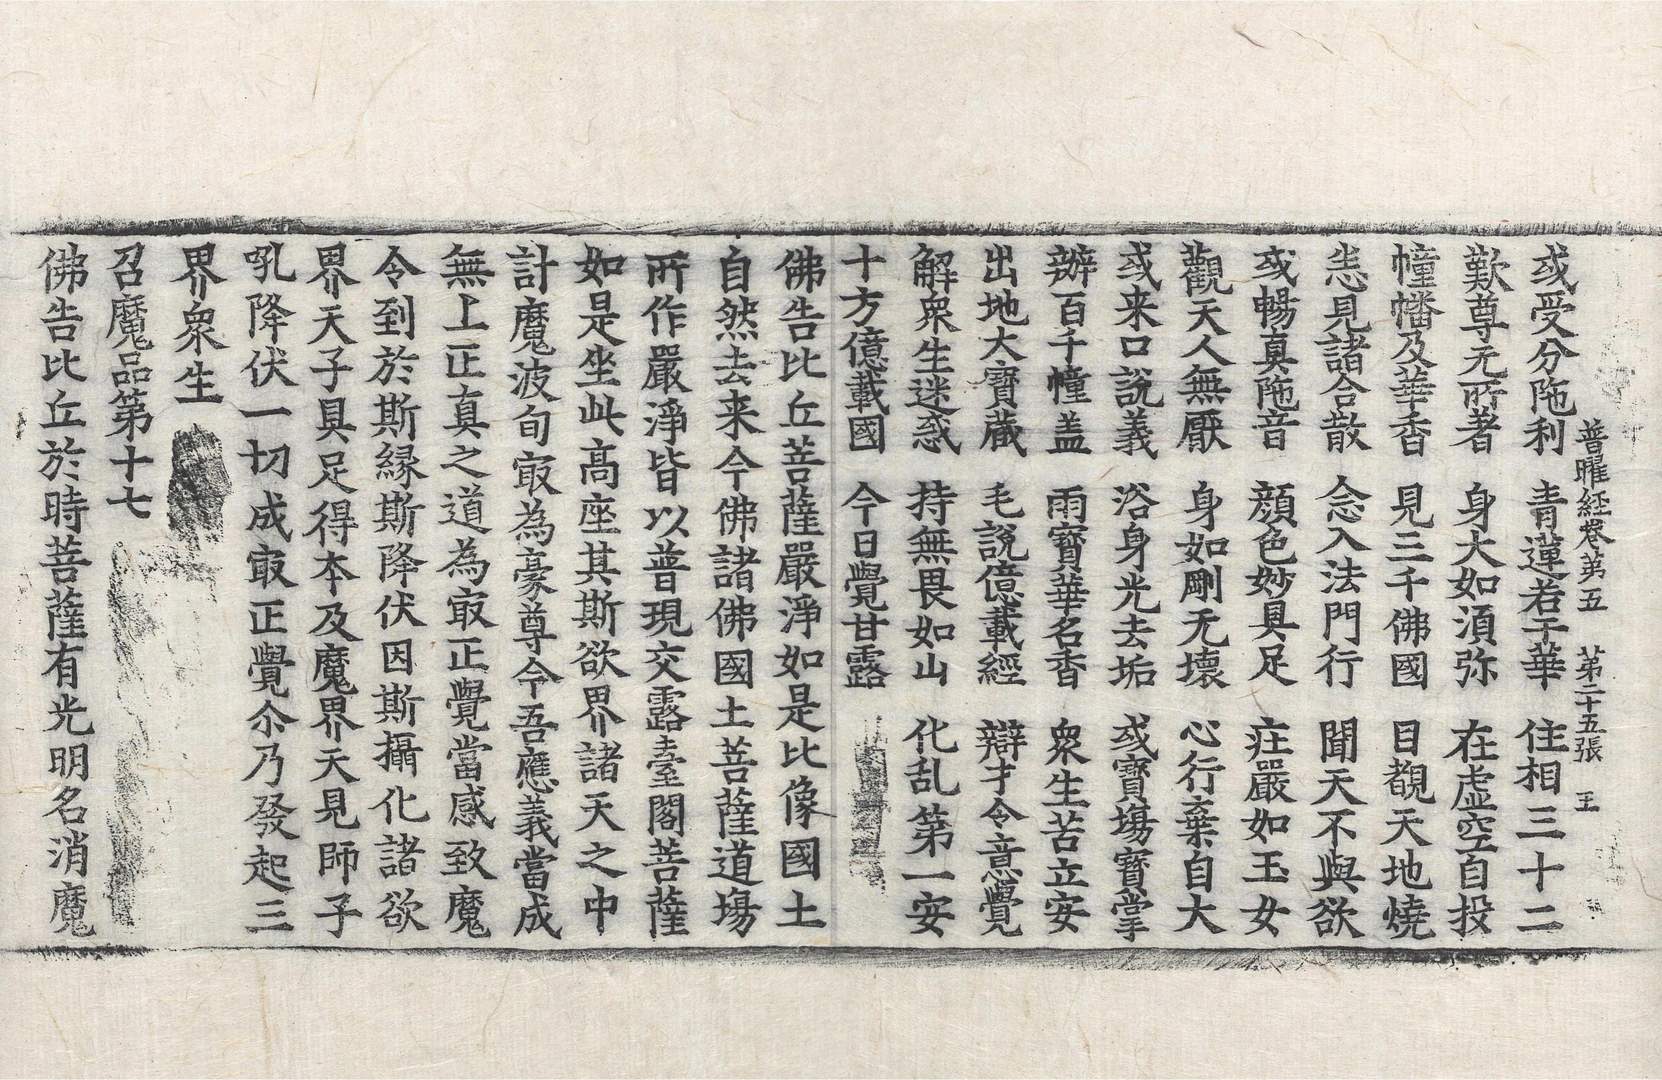 普曜経卷第五　第二十五張　王
或受分陁利　青蓮若干華　住相三十二
歎尊无所著　身大如湏弥　在虚空自投
幢幡及華香　見三千佛國　目覩天地燒
悉見諸合散　念入法門行　聞天不與欲
或暢真陁音　顔色妙具足　莊嚴如玉女
觀天人無猒　身如剛无壞　心行棄自大
或来口說義　浴身光去垢　或寳場寳掌
辦百千幢盖　雨寳華名香　衆生苦立安
出地大寳藏　毛說億載經　辯才令意覺
解衆生迷惑　持無畏如山　化乱第一安
十方億載國　今日覺甘露
佛告比丘菩薩嚴淨如是比像國土
自然去来今佛諸佛國土菩薩道場
所作嚴淨皆以普現交露臺閣菩薩
如是坐此高座其斯欲界諸天之中
計魔波旬㝡為豪尊今吾應義當成
無上正真之道為㝡正覺當感致魔
令到於斯縁斯降伏因斯攝化諸欲
界天子具足得本及魔界天見師子
吼降伏一切成㝡正覺尒乃發起三
界衆生
召魔品第十七
佛告比丘於時菩薩有光明名消魔